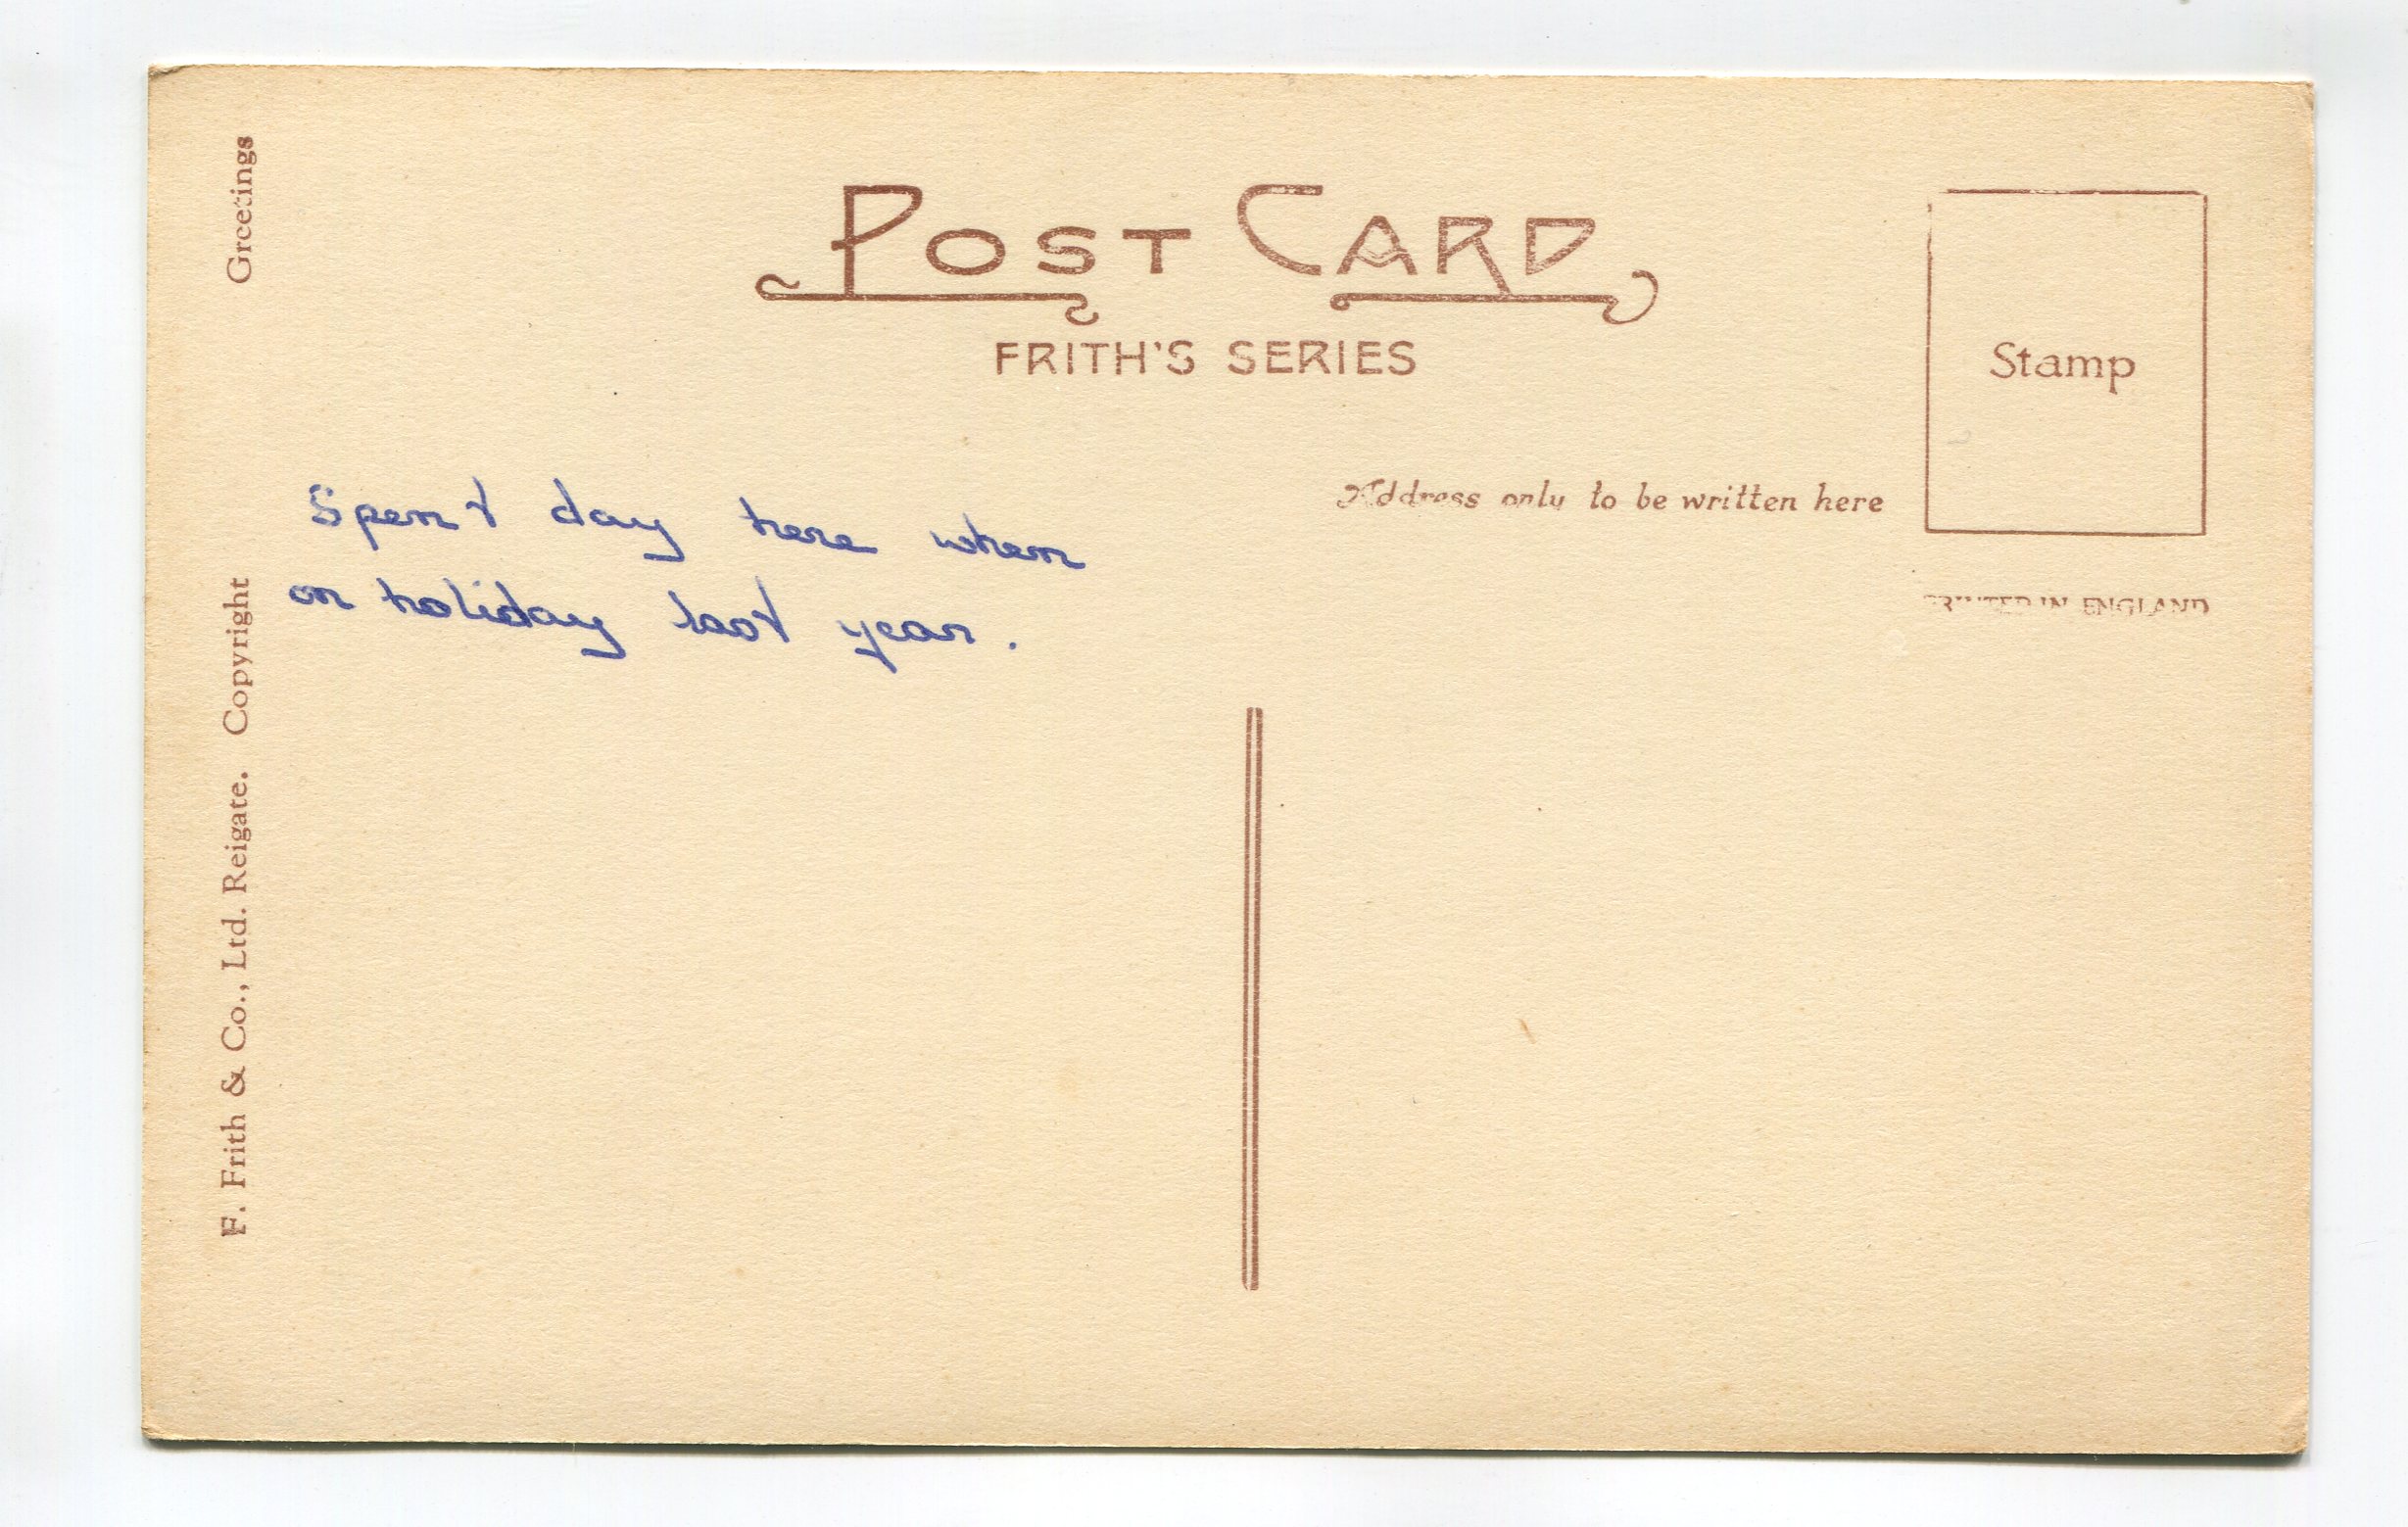 Greetings
POST CARD
FRITH'S SERIES
Stamp
Address only to be written here
PRINTED IN ENGLAND
Spent day here when
on holiday last year.
F. Frith & Co., Ltd. Reigate. Copyright